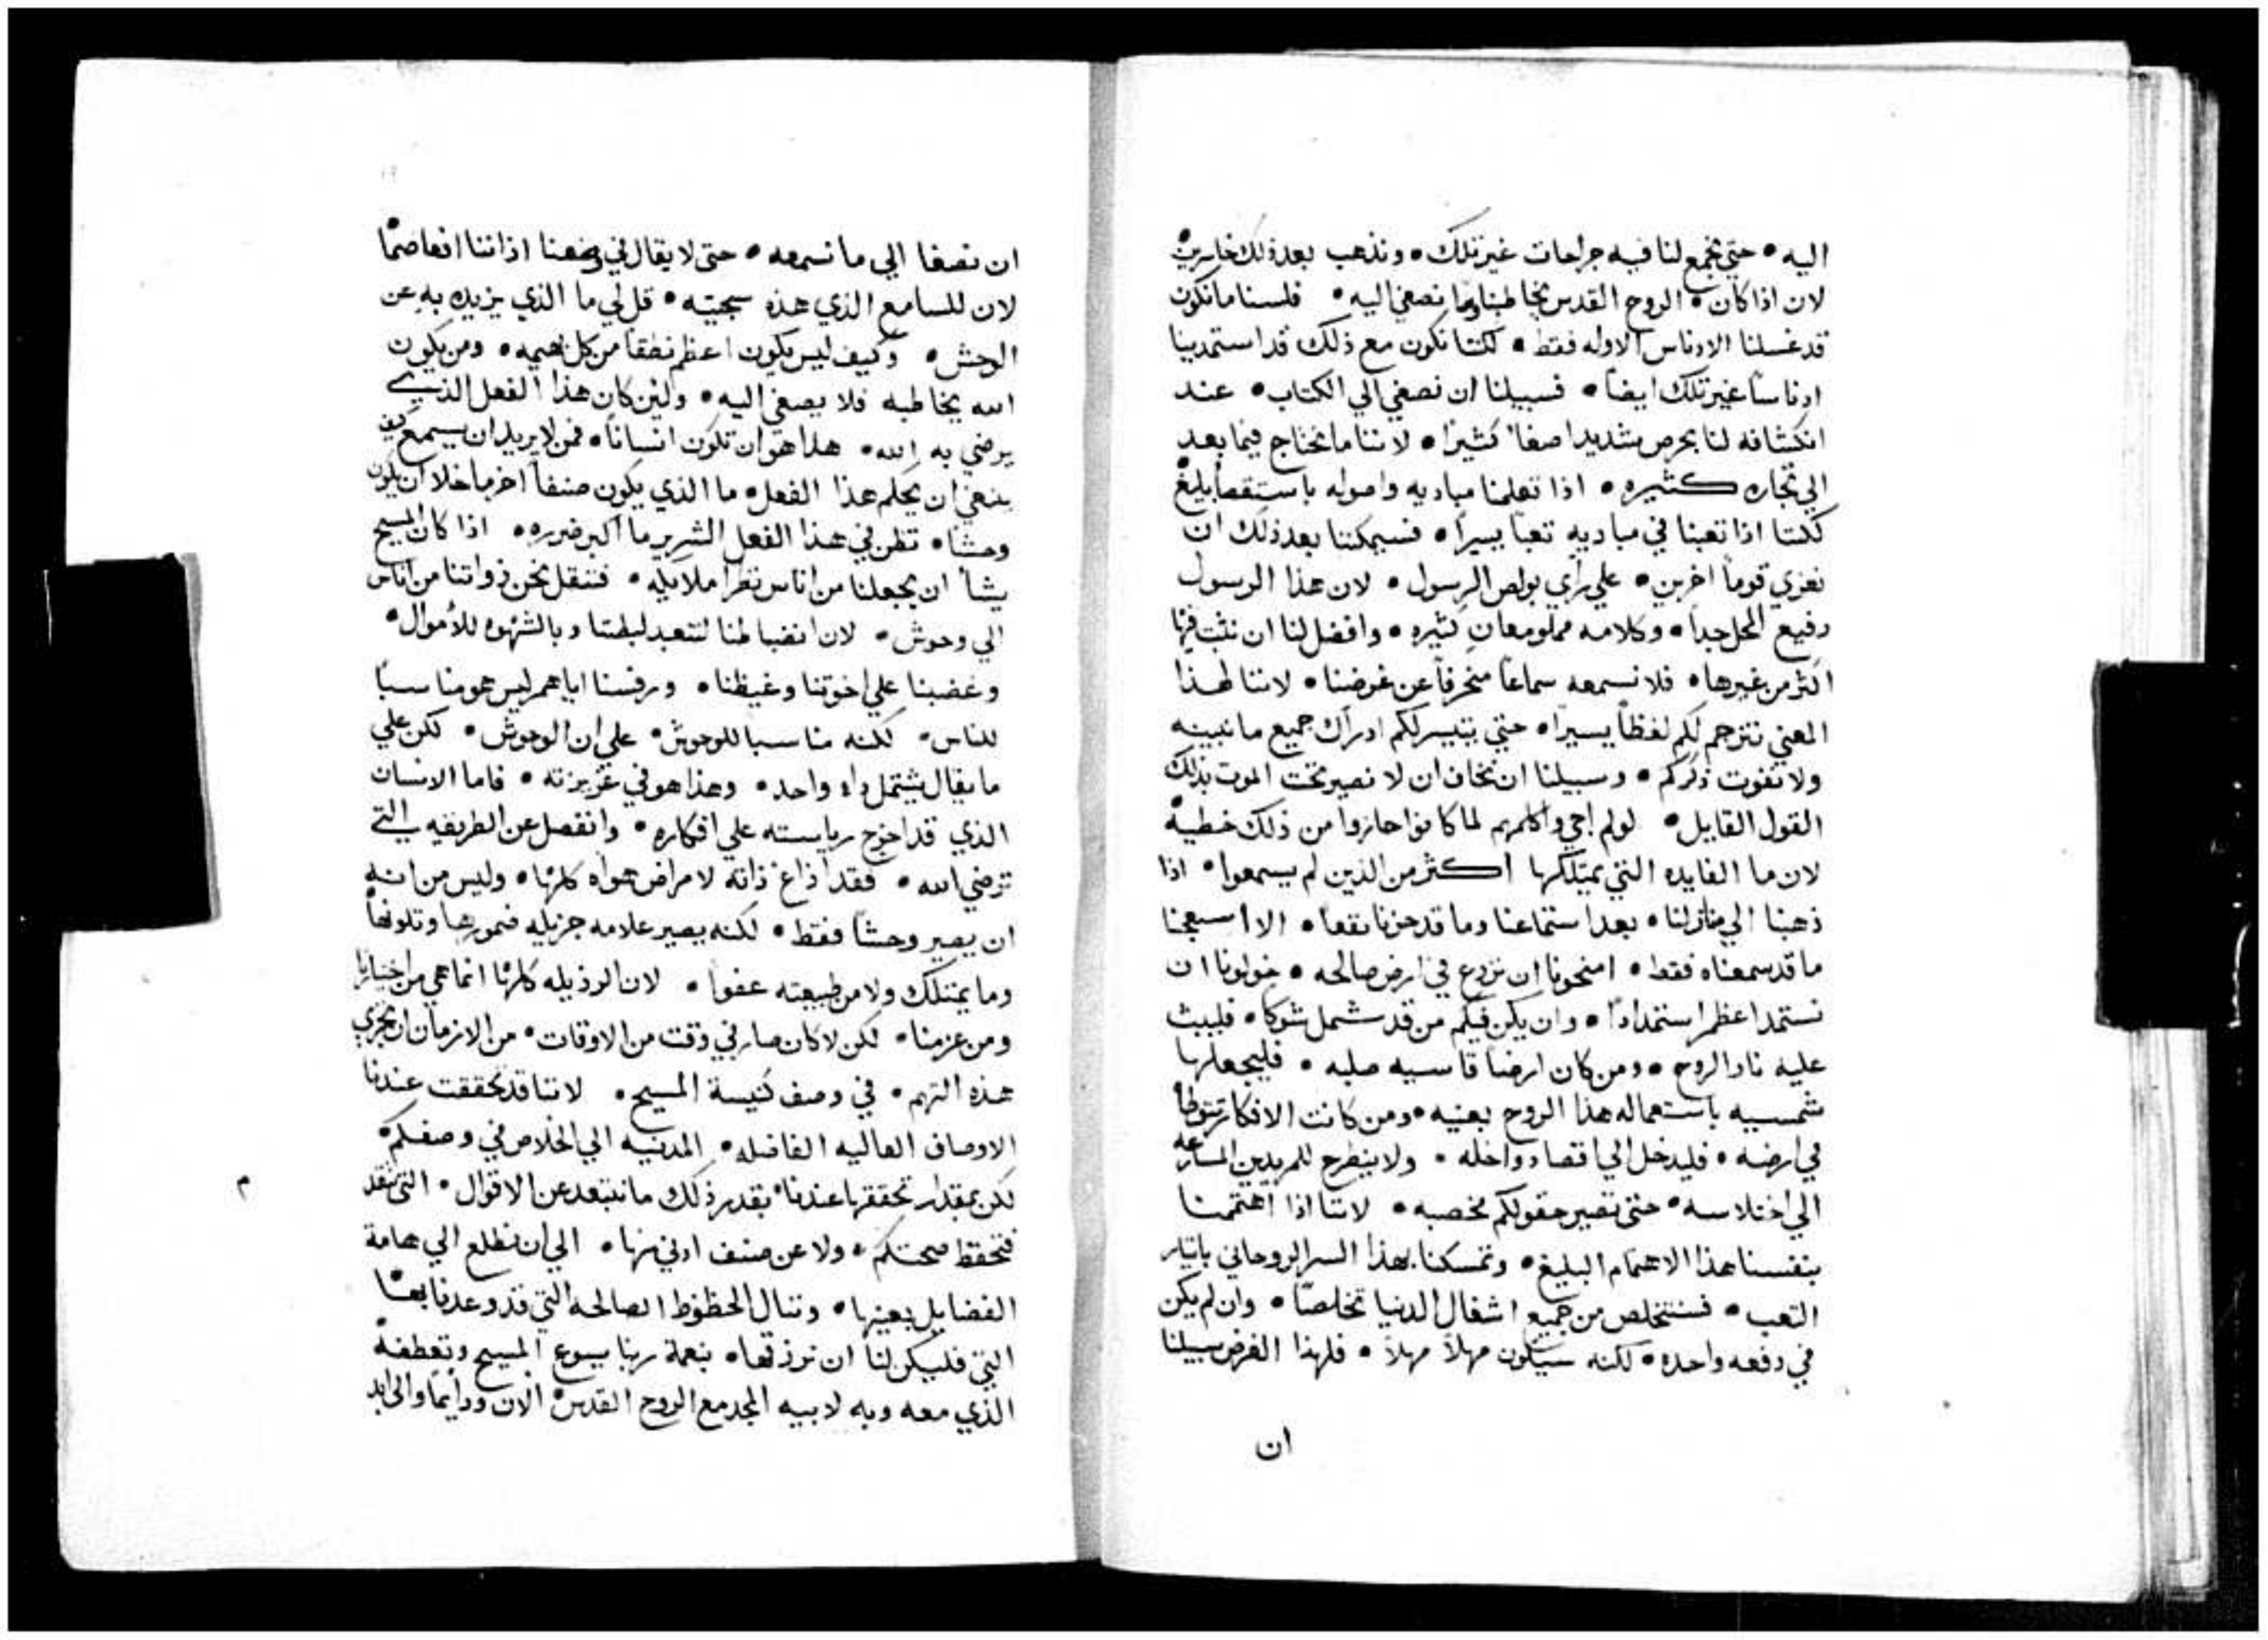 اليه • حتي نجمع لنا فيه جراحات غير تلك • ونذهب بعد ذلك خاسرين
لان اذا كان • الروح القدس يخاطبنا وما نصغي اليه • فلسنا ما نكون
قد غسلنا الادناس الاوله فقط • لكننا نكون مع ذلك قد استمدينا
ادناسًا غير تلك ايضًا • فسبيلنا ان نصغي الي الكتاب • عند
انكشافه لنا بحرص شديد اصغاً كثيرًا • لاننا ما نحتاج فيما بعد
الي تجاره كثيره • اذا تعلمنا مباديه واصوله باستقصاً بليغ
لكننا اذا تعبنا في مباديه تعباً يسيراً • فسيمكننا بعد ذلك ان
نعزي قوماً اخرين • علي راي بولص الرسول • لان هذا الرسول
رفيع المحل جداً • وكلامه مملو معانٍ كثيره • وافضل لنا ان نثبت فيها
اكثر من غيرها • فلا نسمعه سماعاً منحرفاً عن غرضنا • لاننا لهذا
المعني نترجم لكم لفظاً يسيراً • حتي يتيسر لكم ادراك جميع ما نبينه
ولا تفوت ذكركم • وسبيلنا ان نخاف ان لا نصير تحت الموت بذلك
القول القايل • لو لم اجي واكلمهم لما كانوا حازوا من ذلك خطية
لان ما الفايده التي يمتلكها اكثر من الذين لم يسمعوا • اذا
ذهبنا الي منازلنا • بعد استماعنا وما قد حزنا نفعاً • الا استعجبنا
ما قد سمعناه فقط • امنحونا ان نزرع في ارض صالحه • خولونا ان
نستمد اعظم استمداداً • وان يكن فيكم من قد شمل شوكا • فليبث
عليه نار الروح • ومن كان ارضاً قاسيه صلبه • فليجعلها
شمسيه باستعماله هذا الروح بعينه • ومن كانت الافكار تتوطأ
في ارضه • فليدخل الي اقصاء داخله • ولا ينطرح للمريدين المسارعه
الي اختلاسه • حتي تصير حقولكم مخصبه • لاننا اذا اهتممنا
بنفسنا هذا الاهتمام البليغ • وتمسكنا بهذا السر الروحاني بايثار
التعب • فسنتخلص من جميع اشغال الدنيا تخلصًا • وان لم يكن
في دفعه واحده • لكنه سيكون مهلاً مهلاً • فلهذا الغرض سبيلنا
ان
ان نصغا الي ما نسمعه • حتي لا يقال في وصفنا اذاننا افعا صمًا
لان للسامع الذي هذه سجيته • قل لي ما الذي يزيده به عن
الوحش • وكيف ليس يكون اعظم نطقاً من كل بهيمه • ومن يكون
الله يخاطبه فلا يصغي اليه • ولين كان هذا الفعل الذي
يرضي به الله • هذا هو ان تكون انساناً • فمن لا يريد ان يسمع كيف
ينبغي ان يحكم هذا الفعل • ما الذي يكون صنفاً اخر ما خلا ان يكون
وحشًا • تظن في هذا الفعل الشرير ما اكبر ضرره • اذا كان المسيح
يشأ ان يجعلنا من اناس نظرا ملايكه • فننقل نحن ذواتنا من اناس
الي وحوش • لان انضباطنا لنتعبد لبطننا وبالشهوه للاموال •
وغضبنا علي اخوتنا وغيظنا • ورفسنا اياهم ليس هو مناسبًا
للناس • لكنه مناسبا للوحوش • علي ان الوحوش • لكن علي
ما يقال يشتمل داء واحد • وهذا هو في غريزته • فاما الانسان
الذي قد اخرج رياسته علي افكاره • وانفصل عن الطريقه التي
ترضي الله • فقد اذاع ذاته لامراض هواه كلها • وليس من انه
ان يصير وحشًا فقط • لكنه يصير علامه جزيله فنمورها وتلونها
وما يمتلك ولا من طبيعته عفوا • لان الرذيله كلها انما هي من اختيارنا
ومن عزمنا • لكن لا كان صار في وقت من الاوقات • من الازمان ان تجري
هذه التهم • في وصف كنيسة المسيح • لاننا قد تحققت عندنا
الاوصاف العاليه الفاضله • المدنيه الي الخلاص في وصفكم •
لكن بمقدار تحققها عندنا • بقدر ذلك ما نبتعد عن الاقوال • التي تنقد
م
فتحفظ صحتكم • ولا عن صنف ادني منها • الي ان نطلع الي هامة
الفضايل بعينها • وننال الحظوظ الصالحه التي قد وعدنا بها
التي فليكن لنا ان نرزقها • بنعمة ربنا يسوع المسيح وتعطفه
الذي معه وبه لابيه المجد مع الروح القدس الان ودايمًا والي ابد